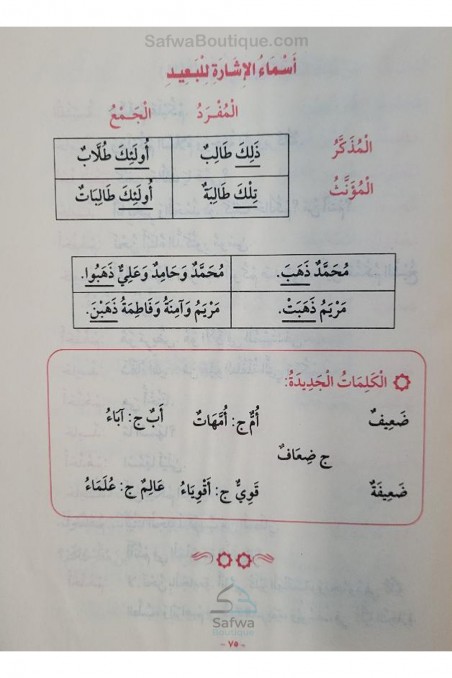 SafwaBoutique.com
أَسْمَاءُ الإِشَارَةِ لِلْبَعِيدِ
الْمُفْرَدُ الْجَمْعُ
الْمُذَكَّرُ ذَلِكَ طَالِبٌ أُولَئِكَ طُلَّابٌ
الْمُؤَنَّثُ تِلْكَ طَالِبَةٌ أُولَئِكَ طَالِبَاتٌ
مُحَمَّدٌ ذَهَبَ. مُحَمَّدٌ وَحَامِدٌ وَعَلِيٌّ ذَهَبُوا.
مَرْيَمُ ذَهَبَتْ. مَرْيَمُ وَآمِنَةُ وَفَاطِمَةُ ذَهَبْنَ.
الْكَلِمَاتُ الْجَدِيدَةُ:
ضَعِيفٌ أُمٌّ ج: أُمَّهَاتٌ أَبٌ ج: آبَاءٌ
ج ضِعَافٌ
ضَعِيفَةٌ قَوِيٌّ ج: أَقْوِيَاءُ عَالِمٌ ج: عُلَمَاءُ
Safwa
Boutique
- ٧٥ -